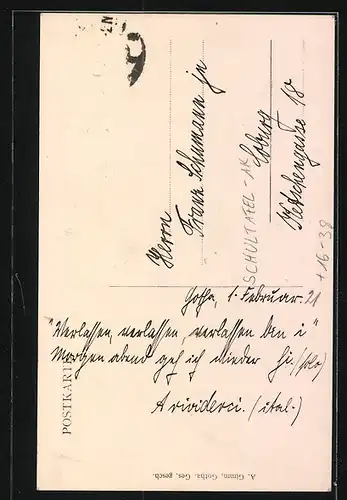 POSTKARTE
Herrn
Franz Schumann jn
Coburg
Ketschengasse 18
SCHULTAFEL-AK
+ 16-38
Gotha, 1. Februar 21
"Verlassen, verlassen, verlassen bin i"
Morgen abend geh ich wieder hi. (solo)
Arividerci. (ital.)
A. Gimm, Gotha. Ges. gesch.